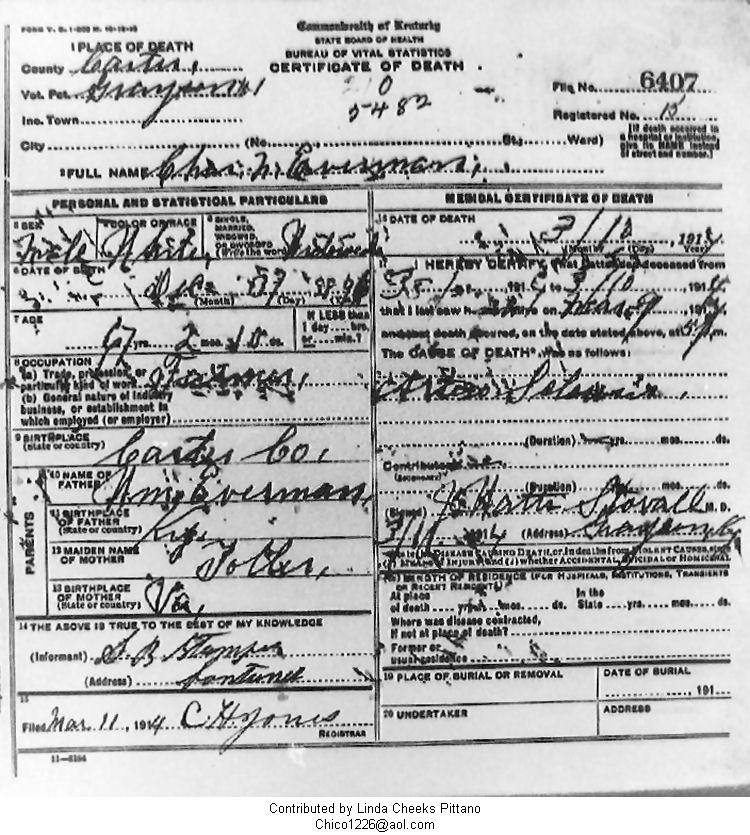 FORM V. S. 1-
Commonwealth of Kentucky
STATE BOARD OF HEALTH
BUREAU OF VITAL STATISTICS
CERTIFICATE OF DEATH
1 PLACE OF DEATH
County Carter,
Vot. Pct. Grayson #1
Inc. Town
City (No. St.; Ward)
File No. 6407
Registered No. 15
5482
[If death occurred in a hospital or institution, give its NAME instead of street and number.]
2 FULL NAME Chas. N. Everman,
PERSONAL AND STATISTICAL PARTICULARS
3 SEX Male
4 COLOR OR RACE White
5 SINGLE, MARRIED, WIDOWED, OR DIVORCED (Write the word)
6 DATE OF BIRTH
Dec (Month) (Day) (Year)
7 AGE
67 yrs. 2 mos. ds.
If LESS than 1 day....hrs. or....min.?
8 OCCUPATION
(a) Trade, profession, or particular kind of work Farmer,
(b) General nature of industry business, or establishment in which employed (or employer)
9 BIRTHPLACE (State or country) Carter Co,
PARENTS
10 NAME OF FATHER Wm. Everman,
11 BIRTHPLACE OF FATHER (State or country) Ky,
12 MAIDEN NAME OF MOTHER
13 BIRTHPLACE OF MOTHER (State or country) Va,
14 THE ABOVE IS TRUE TO THE BEST OF MY KNOWLEDGE
(Informant) S. B. Stamper
(Address)
15
Filed Mar 11, 1914 C H Jones
REGISTRAR
11-5184
MEDICAL CERTIFICATE OF DEATH
16 DATE OF DEATH
3/10 1914
(Month) (Day) (Year)
17 I HEREBY CERTIFY, that I attended deceased from
191 to 3/10 1914
that I last saw h alive on Mar. 9
and that death occurred, on the date stated above, at m.
The CAUSE OF DEATH* was as follows:
(Duration) yrs. mos. ds.
Contributory
(SECONDARY)
(Duration) yrs. mos. ds.
(Signed) Watts Stovall M.D.
3/11 1914 (Address) Grayson, Ky
*State the DISEASE CAUSING DEATH, or, in deaths from VIOLENT CAUSES, state (1) MEANS OF INJURY; and (2) whether ACCIDENTAL, SUICIDAL or HOMICIDAL.
18 LENGTH OF RESIDENCE (FOR HOSPITALS, INSTITUTIONS, TRANSIENTS OR RECENT RESIDENTS)
At place of death yrs. mos. ds. In the State yrs. mos. ds.
Where was disease contracted, if not at place of death?
Former or usual residence
19 PLACE OF BURIAL OR REMOVAL
DATE OF BURIAL
, 191
20 UNDERTAKER
ADDRESS
Contributed by Linda Cheeks Pittano
Chico1226@aol.com